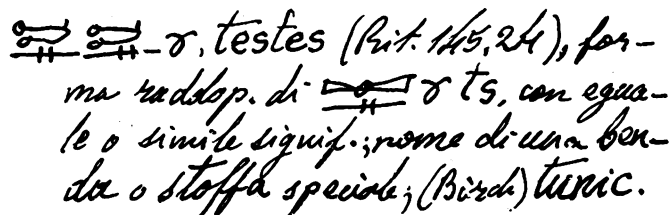 testes (Rit. 145,24), for-
ma raddop. di ts, con egua-
le o simile signif.; nome di una ben-
da o stoffa speciale; (Birch) tunic.